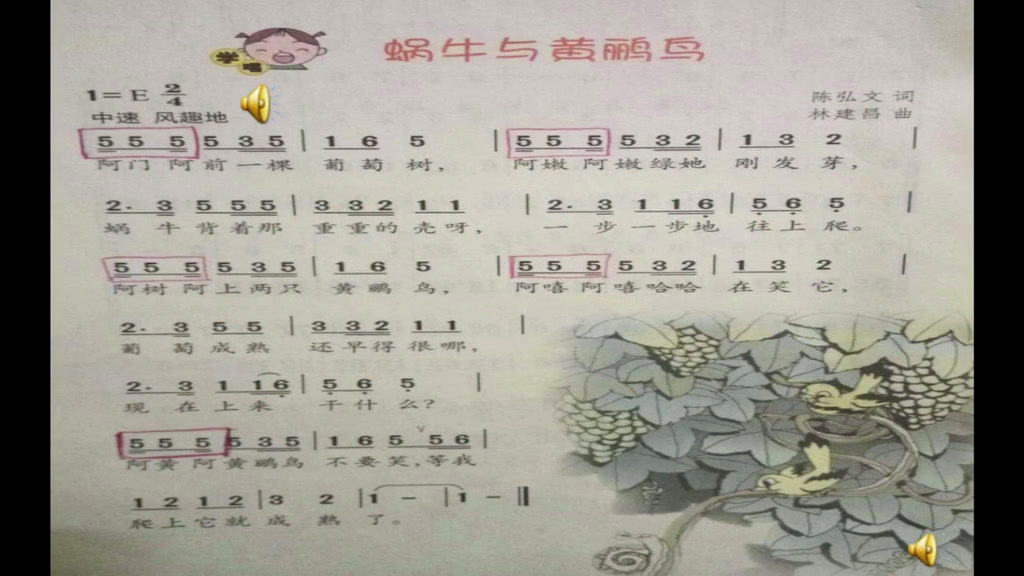 蜗牛与黄鹂鸟
学唱
1=E 2/4
陈弘文 词
中速 风趣地
林建昌 曲
5 5 5 5 3 5 | 1 6 5 | 5 5 5 5 3 2 | 1 3 2 |
阿门 阿前一棵 葡萄树, 阿嫩 阿嫩绿她 刚发芽,
2. 3 5 5 5 | 3 3 2 1 1 | 2. 3 1 1 6 | 5 6 5 |
蜗牛背着那 重重的壳呀, 一步一步地 往上爬。
5 5 5 5 3 5 | 1 6 5 | 5 5 5 5 3 2 | 1 3 2 |
阿树 阿上两只 黄鹂鸟, 阿嘻 阿嘻哈哈 在笑它,
2. 3 5 5 | 3 3 2 1 1 |
葡萄成熟 还早得很哪,
2. 3 1 1 6 | 5 6 5 |
现在上来 干什么?
5 5 5 5 3 5 | 1 6 5 5 6 |
阿黄 阿黄鹂鸟 不要笑,等我
1 2 1 2 | 3 2 | 1 - | 1 - ‖
爬上它就成熟了。